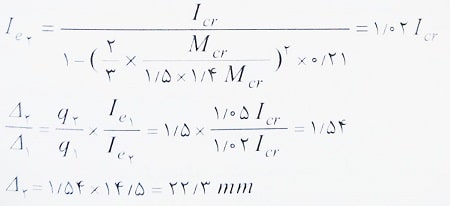 I_e۲ = I_cr / (۱ − (۲/۳ × M_cr / (۱/۵ × ۱/۴ M_cr))^۲ × ۰/۲۱) = ۱/۰۲ I_cr
Δ_۲/Δ_۱ = q_۲/q_۱ × I_e۱/I_e۲ = ۱/۵ × ۱/۰۵ I_cr / ۱/۰۲ I_cr = ۱/۵۴
Δ_۲ = ۱/۵۴ × ۱۴/۵ = ۲۲/۳ mm